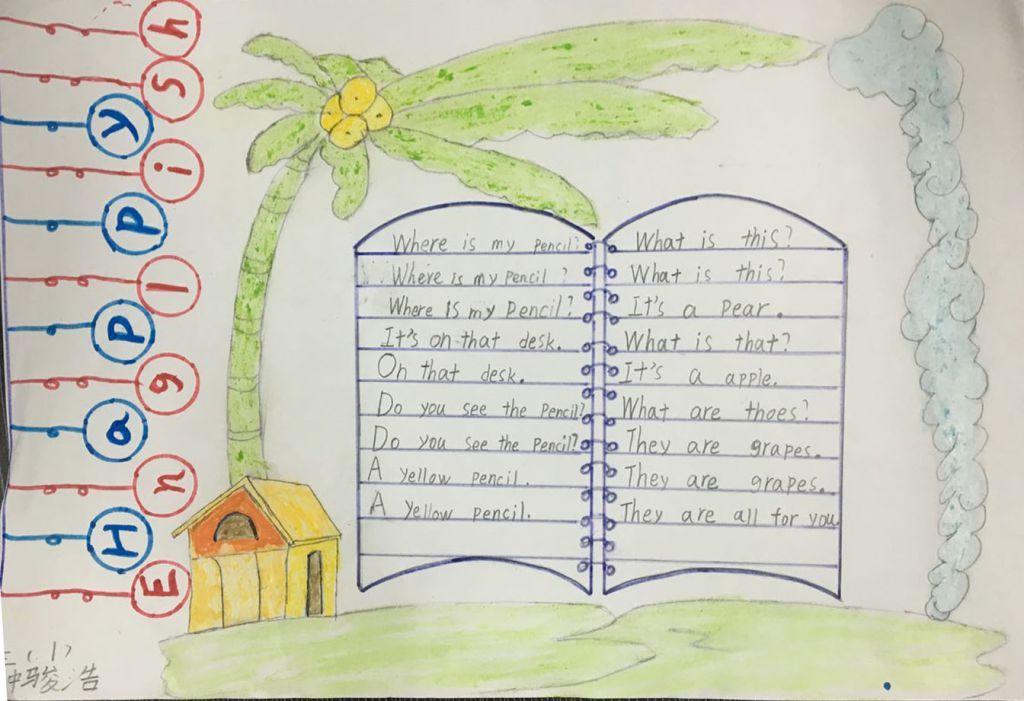 Happy
English
Where is my pencil?
Where is my pencil?
Where is my pencil?
It's on that desk.
On that desk.
Do you see the pencil?
Do you see the pencil?
A yellow pencil.
A yellow pencil.
What is this?
What is this?
It's a pear.
What is that?
It's a apple.
What are thoes?
They are grapes.
They are grapes.
They are all for you.
(1)
骏浩